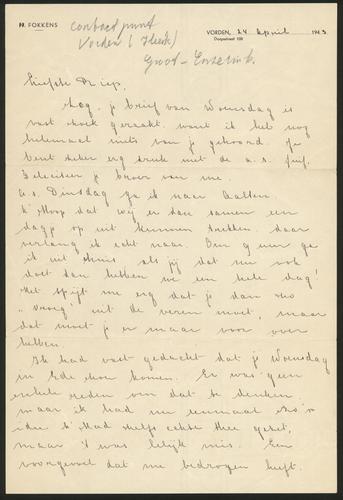 H. FOKKENS
contactpunt
Vorden (Henk)
Groot-Enzerink.
VORDEN, 24 April 1943.
Dorpsstraat
Liefste Riep,
Ach, je brief van Woensdag is
vast zoek geraakt want ik heb nog
helemaal niets van je gehoord. Je
bent zeker erg druk met de a.s. fuif.
Feliciteer je broer van me.
a.s. Dinsdag ga ik naar Aalten.
k' Hoop dat wij er dan samen een
dagje op uit kunnen trekken. Daar
verlang ik echt naar. Om 9 uur ga
ik uit huis als jij dat nu ook
doet dan hebben we een hele dag!
Het spijt me erg dat je dan zoo
"vroeg" uit de veren moet, maar
dat moet je er maar voor over
hebben.
Ik had vast gedacht dat je Woensdag
in Ede zou komen. Er was geen
enkele reden om dat te denken
maar ik had nu eenmaal zoo'n
idee. k' Had zelfs echte thee gezet,
maar 't was lelijk mis. Een
voorgevoel dat me bedrogen heeft.